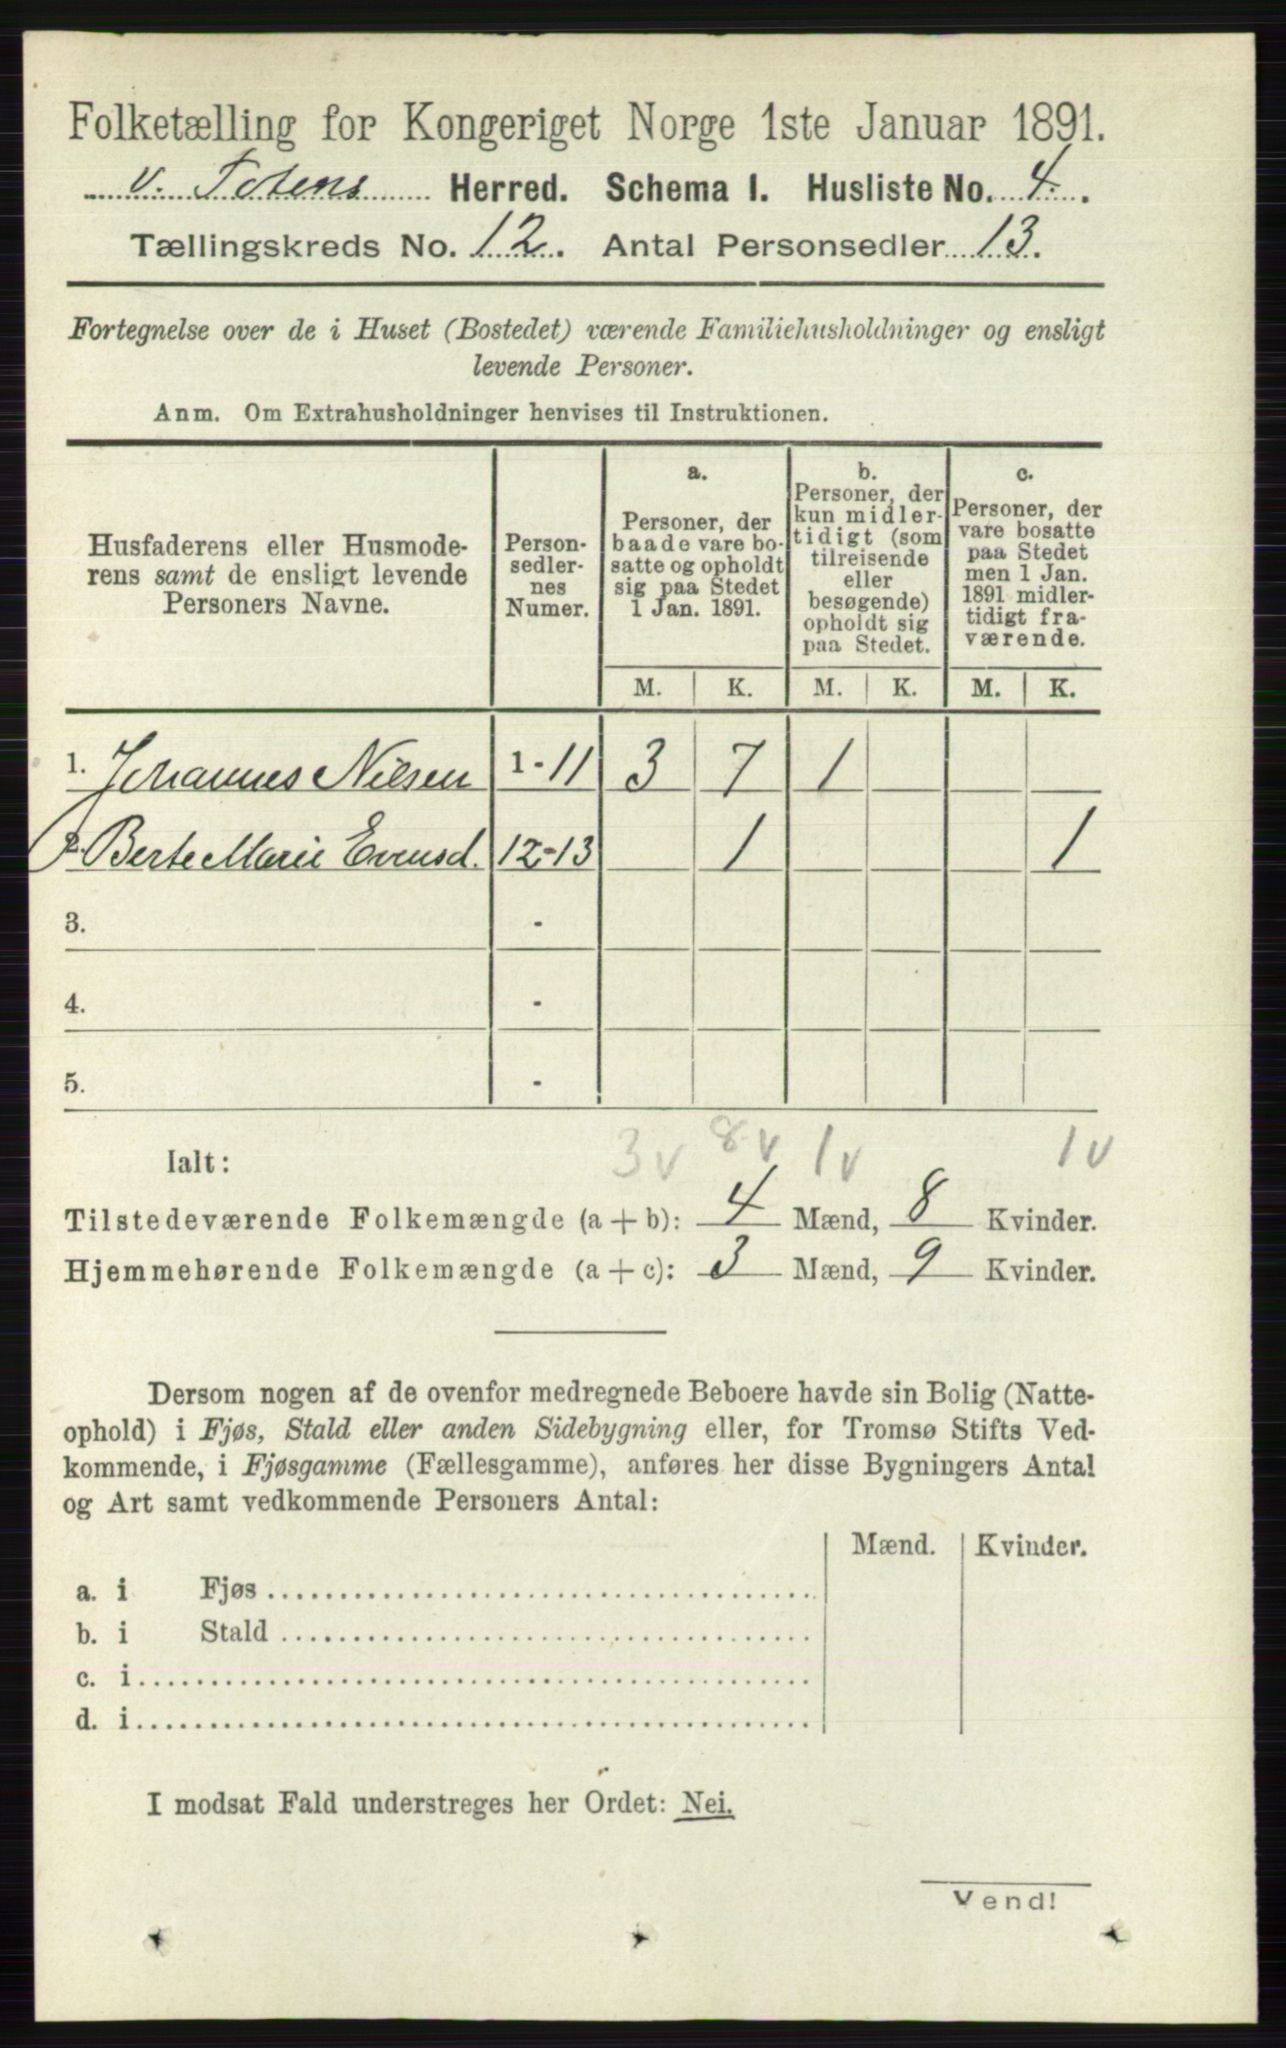 Folketælling for Kongeriget Norge 1ste Januar 1891.
V. Totens Herred. Schema I. Husliste No. 4.
Tællingskreds No. 12. Antal Personsedler 13.
Fortegnelse over de i Huset (Bostedet) værende Familiehusholdninger og ensligt
levende Personer.
Anm. Om Extrahusholdninger henvises til Instruktionen.
Husfaderens eller Husmode-
rens samt de ensligt levende
Personers Navne.
Person-
sedler-
nes
Numer.
a.
Personer, der
baade vare bo-
satte og opholdt
sig paa Stedet
1 Jan. 1891.
b.
Personer, der
kun midler-
tidigt (som
tilreisende
eller
besøgende)
opholdt sig
paa Stedet.
c.
Personer, der
vare bosatte
paa Stedet
men 1 Jan.
1891 midler-
tidigt fra-
værende.
M. K. M. K. M. K.
1. Johannes Nilsen 1-11 3 7 1
2. Berte Marie Evensd. 12-13 1 1
3. -
4. -
5. -
3 v 8 v 1 v 1 v
Ialt:
Tilstedeværende Folkemængde (a + b): 4 Mænd, 8 Kvinder.
Hjemmehørende Folkemængde (a + c): 3 Mænd, 9 Kvinder.
Dersom nogen af de ovenfor medregnede Beboere havde sin Bolig (Natte-
ophold) i Fjøs, Stald eller anden Sidebygning eller, for Tromsø Stifts Ved-
kommende, i Fjøsgamme (Fællesgamme), anføres her disse Bygningers Antal
og Art samt vedkommende Personers Antal:
Mænd. Kvinder.
a. i Fjøs
b. i Stald
c. i
d. i
I modsat Fald understreges her Ordet: Nei.
Vend!